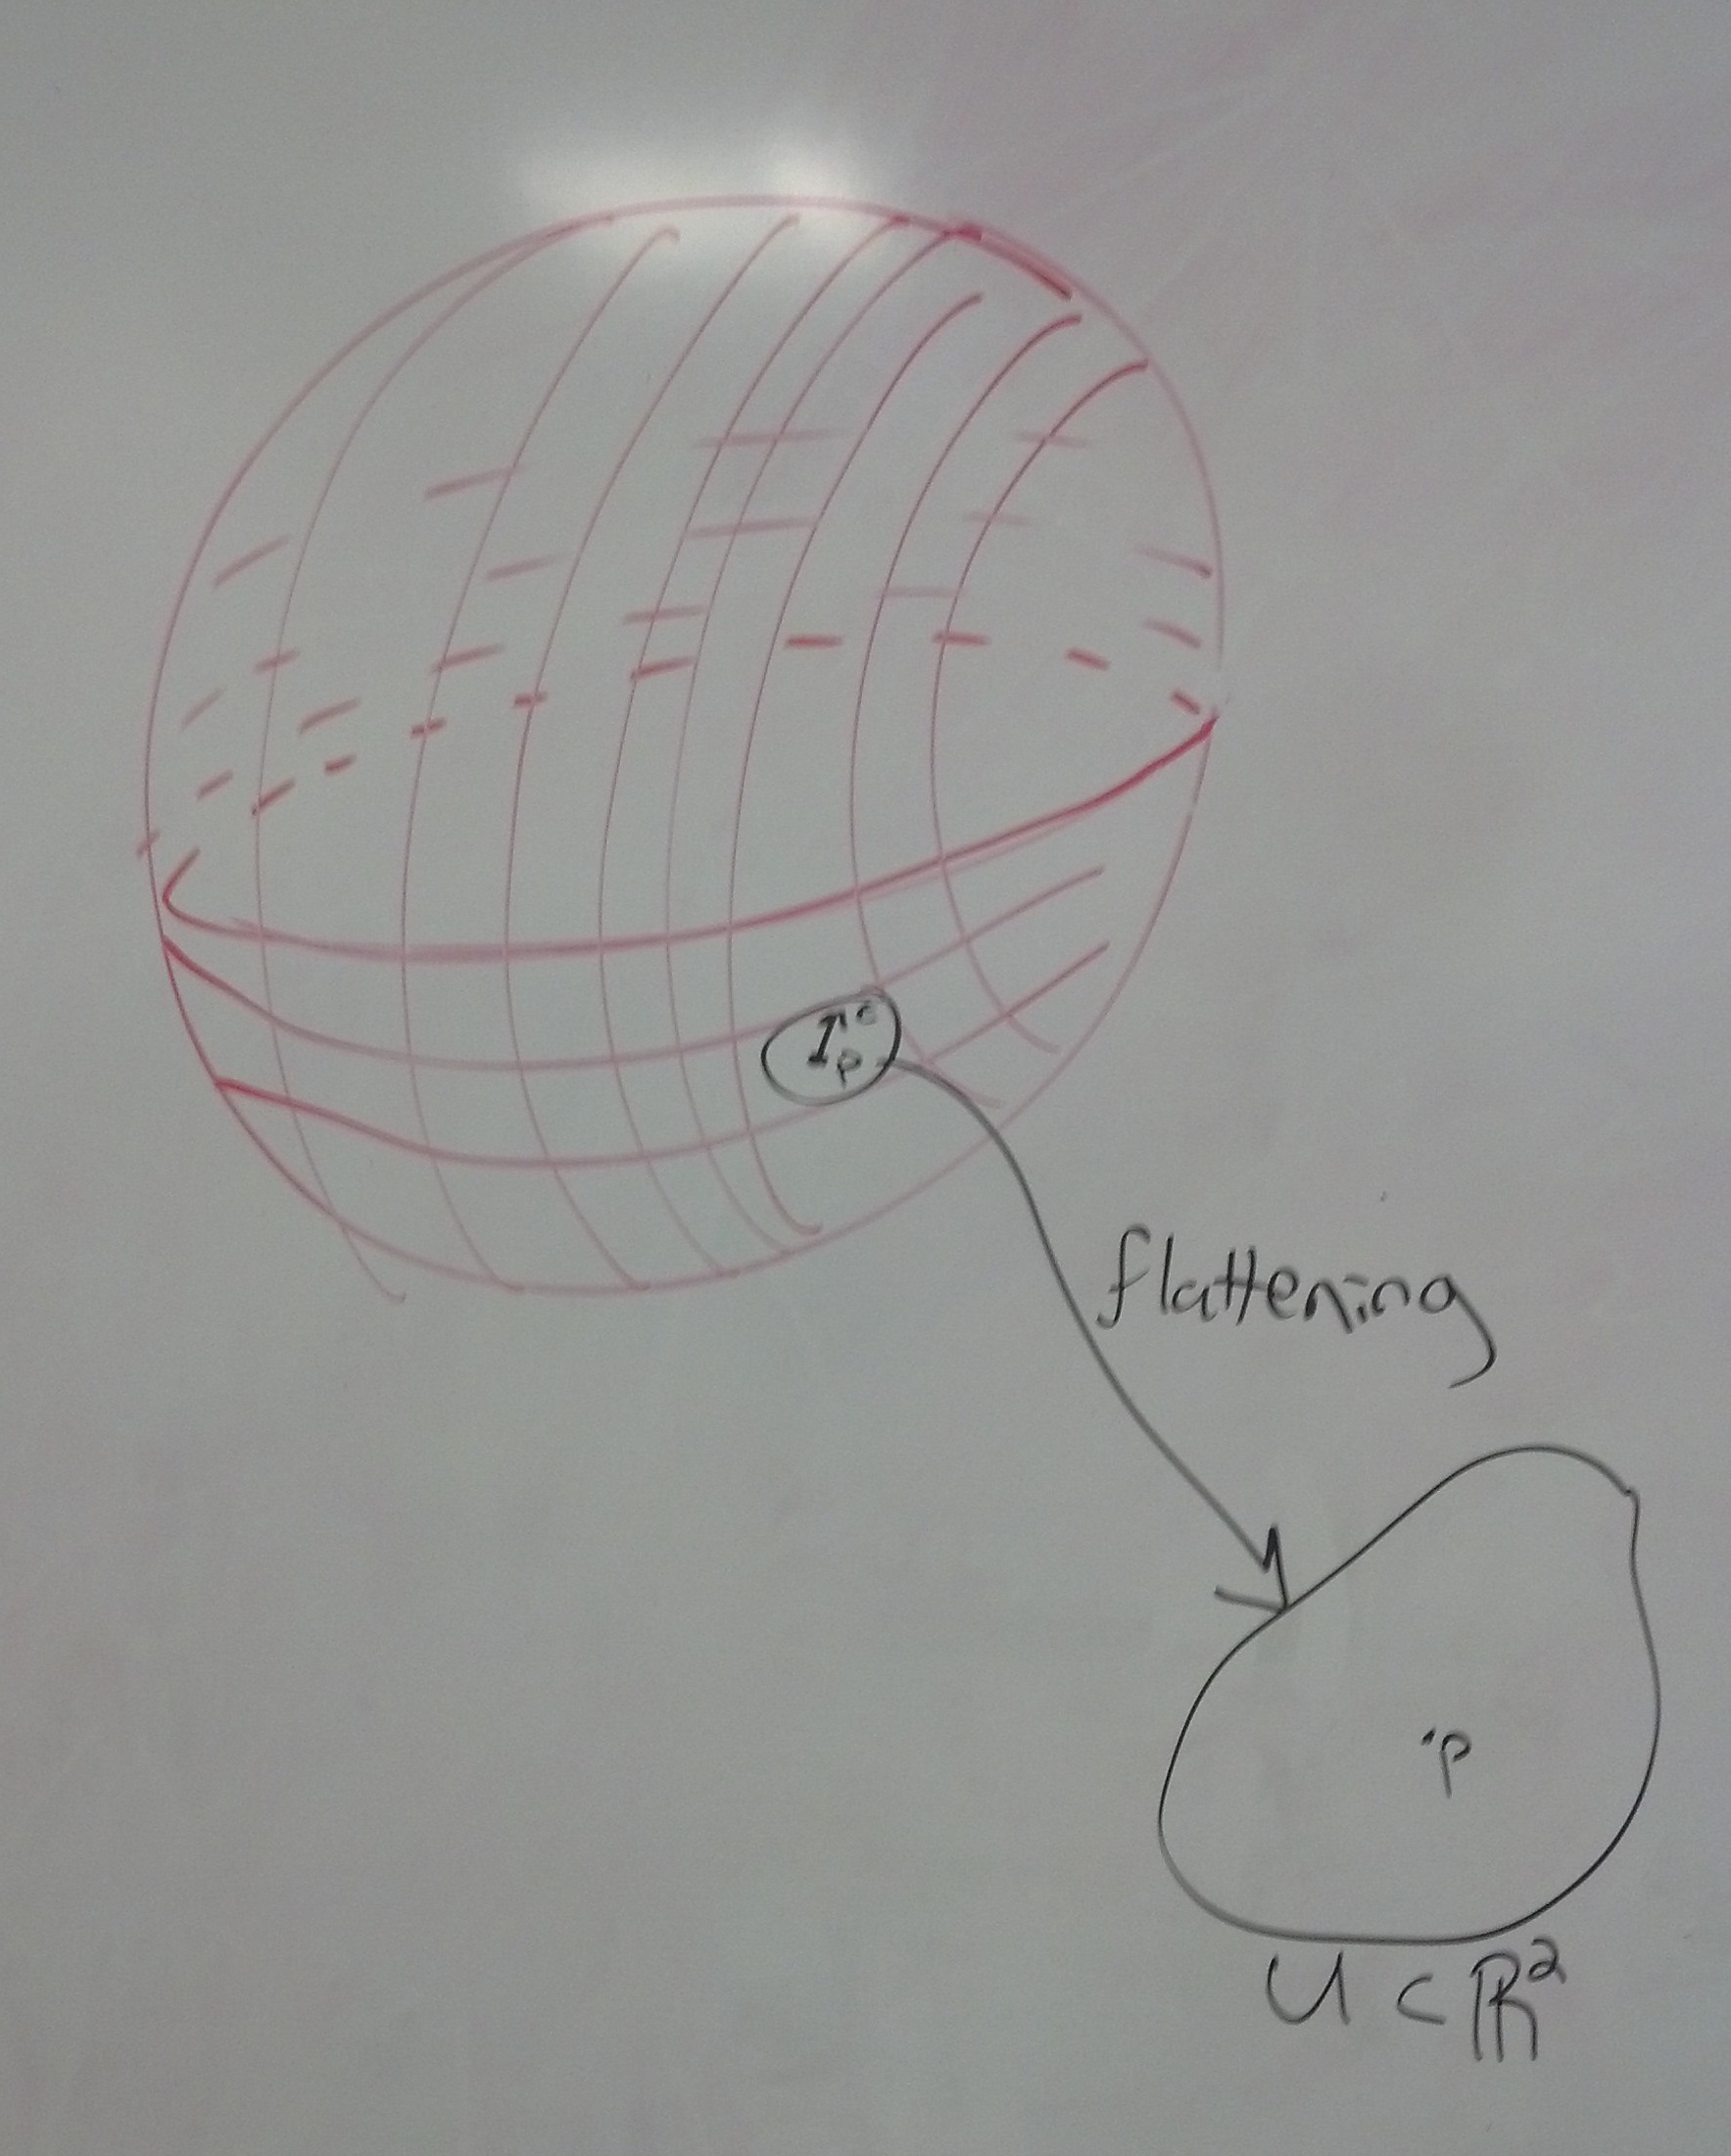 flattening
p
U ⊂ ℝ²